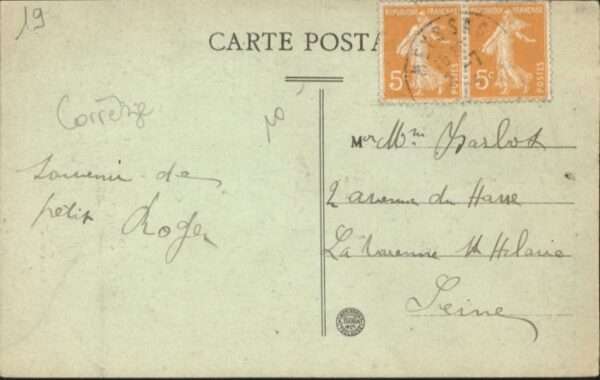 19
CARTE POSTA
REPUBLIQUE FRANÇAISE
5c
POSTES
REPUBLIQUE FRANÇAISE
5c
POSTES
Corrèze
10
souvenir de
petit Roger
M Mm
2 avenue du Havre
La Varenne St Hilaire
Seine